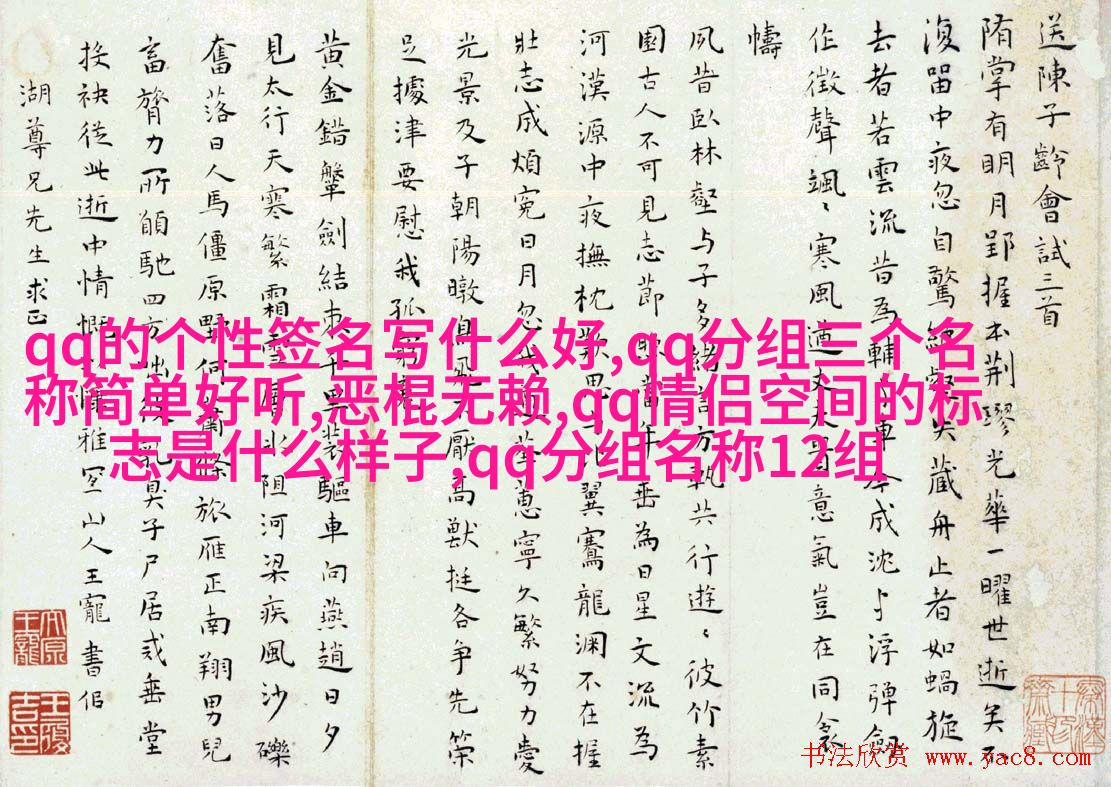 送陳子齡會試三首
隋掌有明月郢握本荆璆光華一曜世逝矣不
復留中夜忽自驚失藏舟止者如蝸旋
去者若雲流昔為輔車今成沈与浮彈劒
作徵聲颯〻寒風遒丈夫意氣豈在同衾
幬
夙昔臥林壑与子多緒言方執共行遊〻彼竹素
園古人不可見志節當年垂為日星文流為
河漢源中夜撫枕歎思翼騫龍淵不在握
壯志成煩寃日月忽坐惠寧久繁努力愛
光景及子朝陽暾鳥飛厭高獸挺各争先策
足據津要慰我孤窮
黃金錯鞶劍結束千里裝驅車向燕趙日夕
見太行天寒繁霜雪層冰阻河梁疾風沙礫
奮落日人馬僵原野何蕭條旅雁正南翔男兒
畜膂力所願馳四方拙乳臭子尸居或垂堂
接袂從此逝中情慨雅宜山人王寵書伯
湖尊兄先生求正
qq的个性签名写什么好,qq分组三个名
称简单好听,恶棍无赖,qq情侣空间的标
志是什么样子,qq分组名称12组
书法欣赏 www.yac8.com